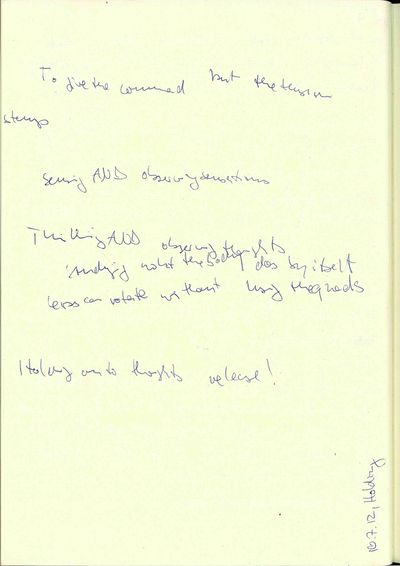 To give the command but the tension
stays
sensing AND observing sensations
Thinking AND observing thoughts
studying what the body does by itself
legs can rotate without using the quads
Holding onto thoughts release!
10.7.12, Holding